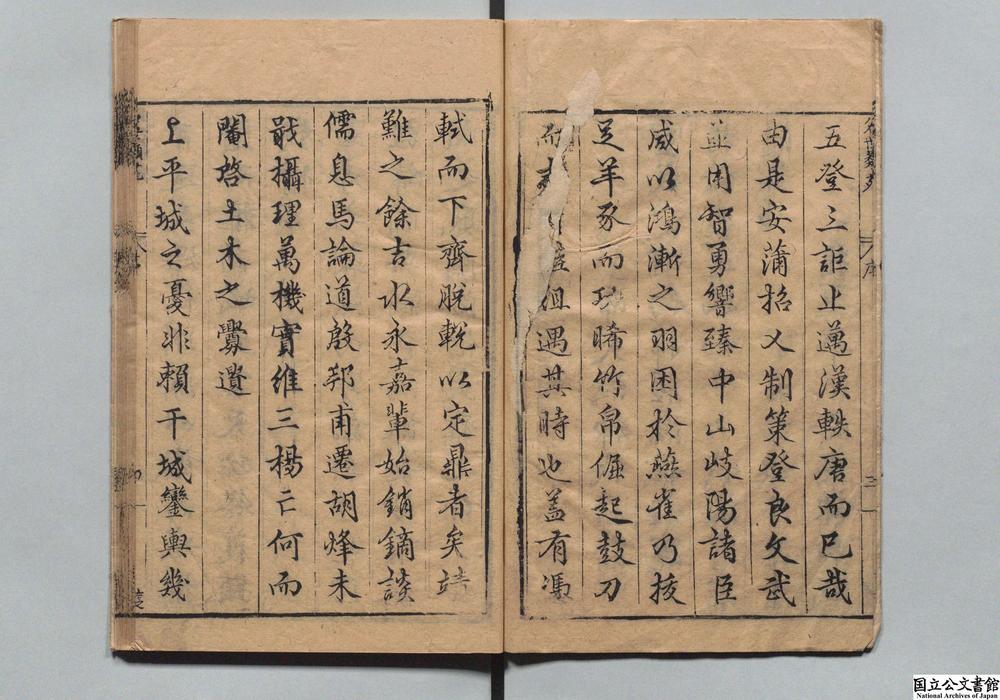 五登三詎止邁漢軼唐而已哉
由是安蒲招乂制策登良文武
並用智勇響臻中山岐陽諸臣
咸以鴻漸之羽困於燕雀乃拔
足羊豕而功晞竹帛倔起鼓刀
而 徂遇其時也盖有馮
序
三
軾而下齊脫輓以定鼎者矣靖
難之餘吉水永嘉輩始銷鏑談
儒息馬論道殷邦甫遷胡烽未
戢攝理萬機實維三楊亡何而
閹啓土木之釁遺
上平城之憂非賴干城鑾輿幾
国立公文書館
National Archives of Japan